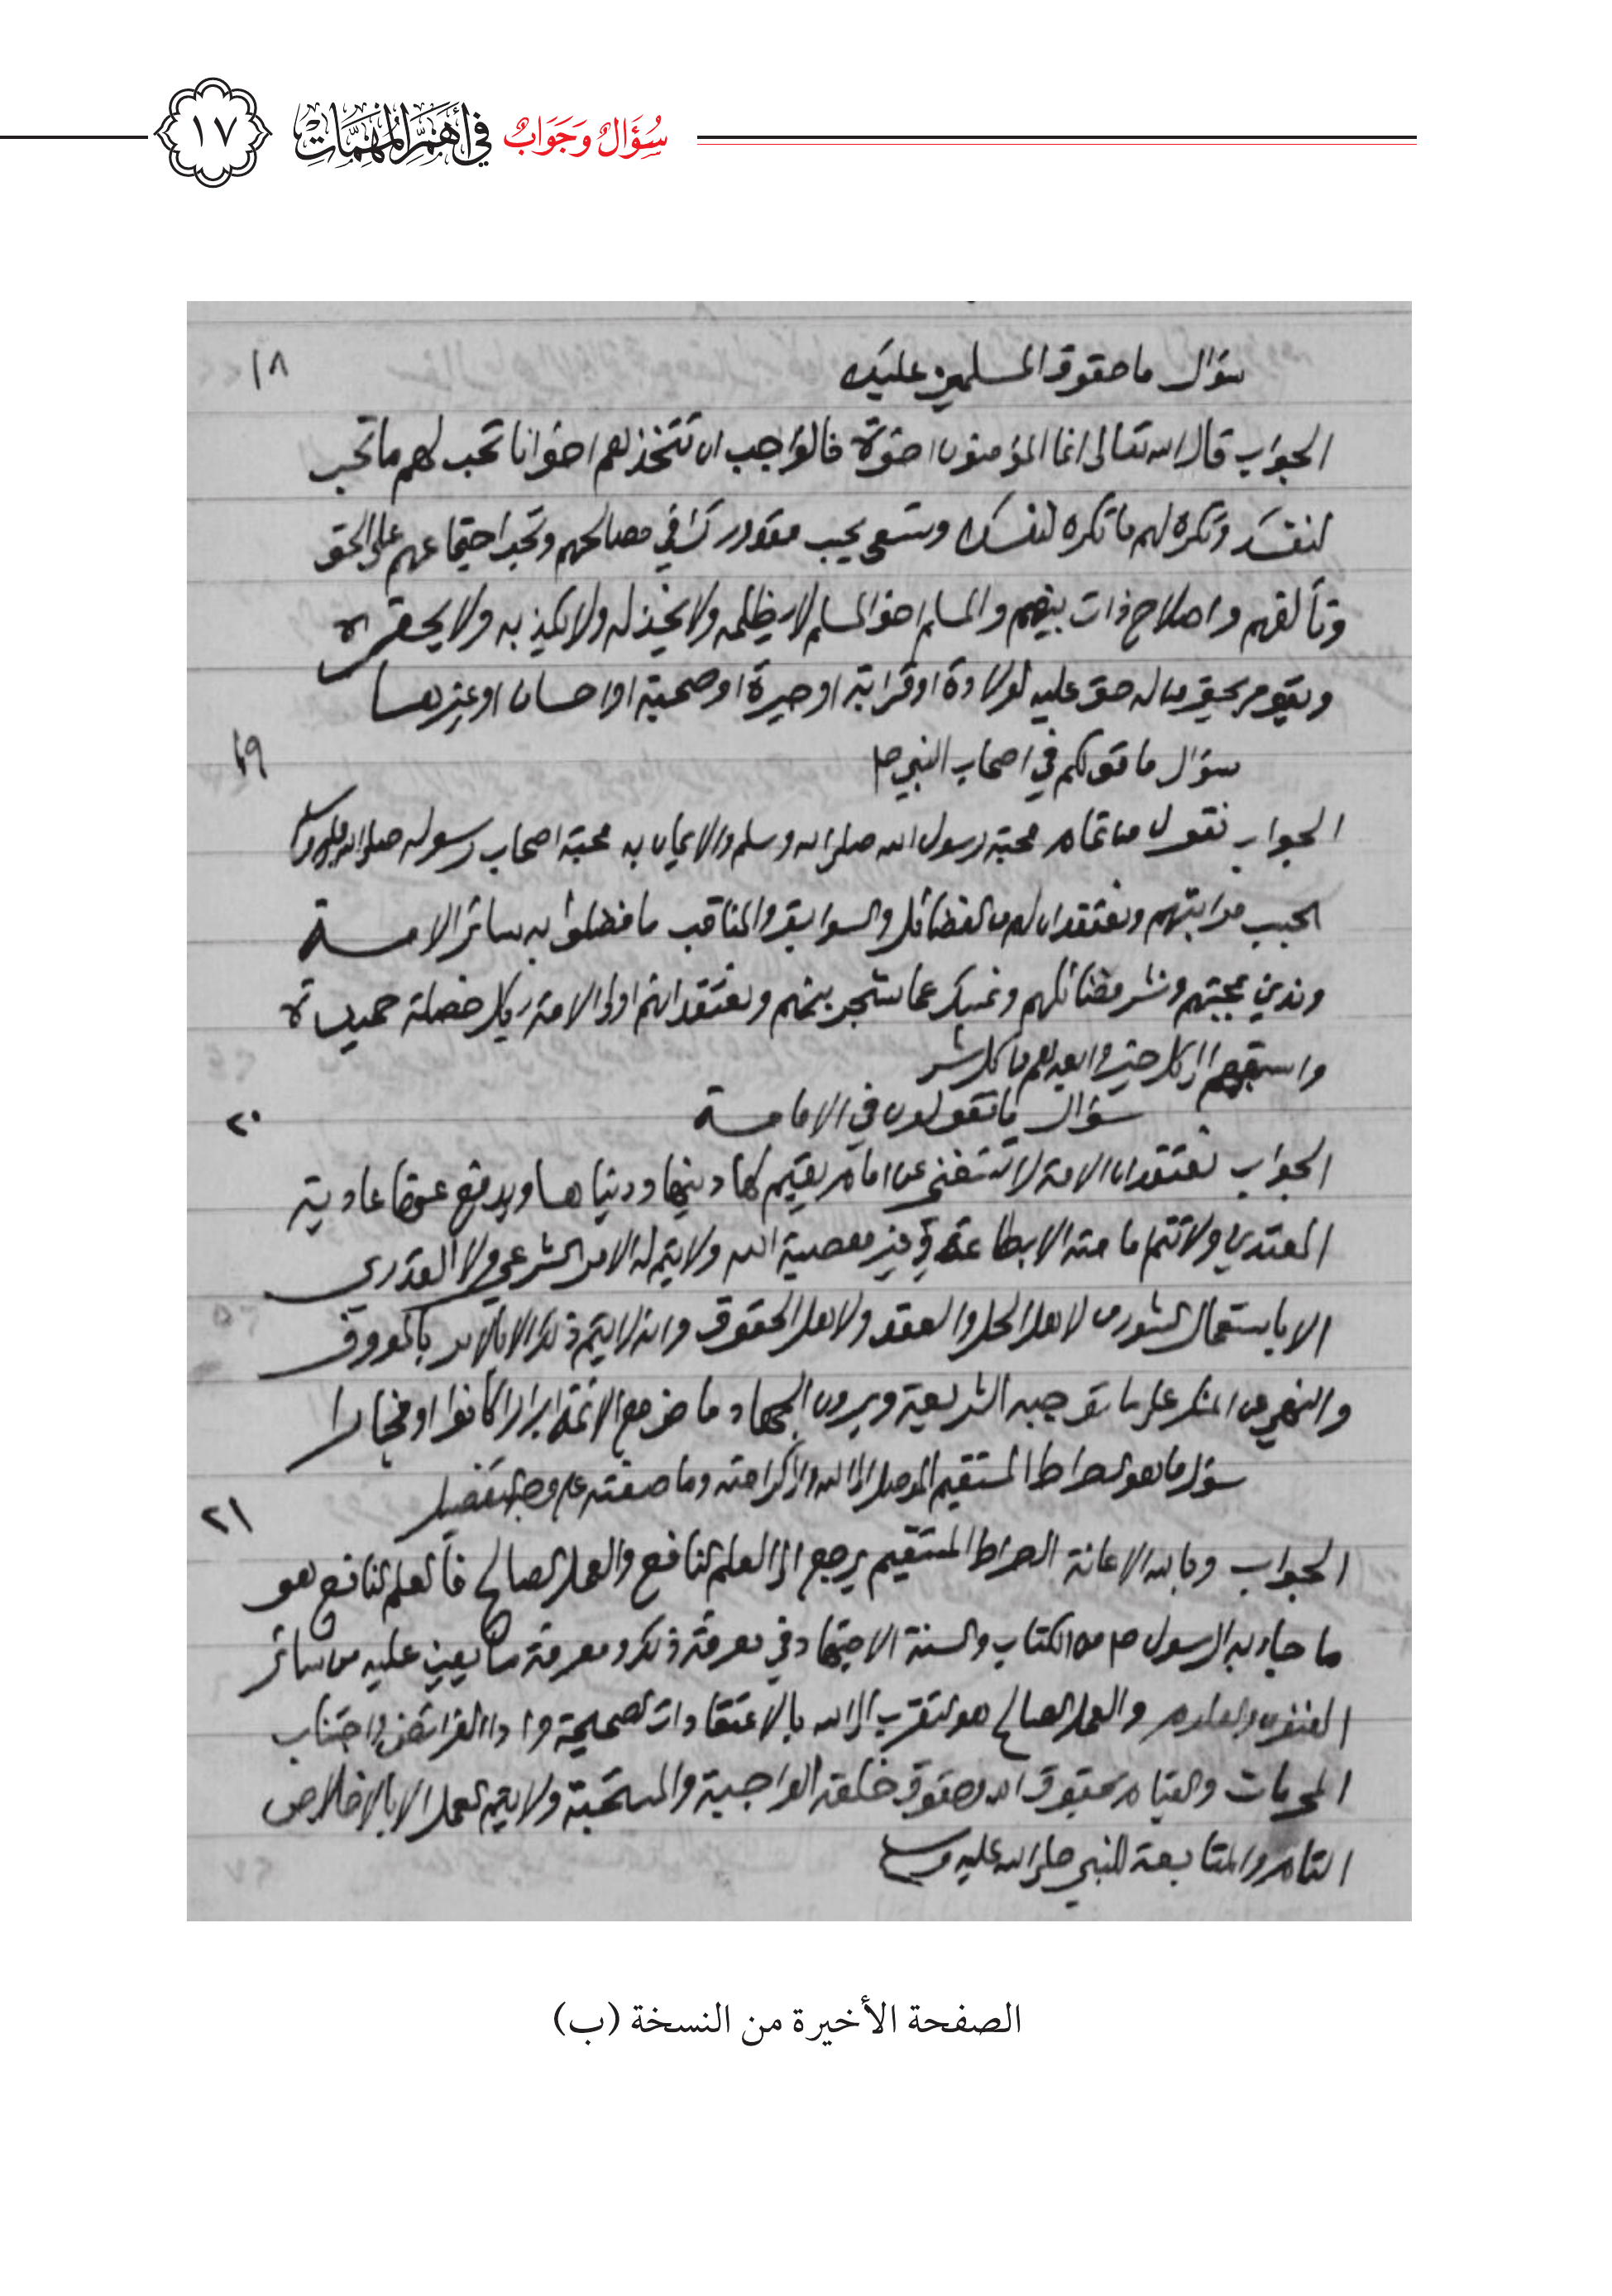 سُؤَالٌ وَجَوَابٌ فِي أَهَمِّ المُهِمَّاتِ
١٧
سؤال ما حقوق المسلمين عليك
١٨
الجواب قال الله تعالى انما المؤمنون اخوة فالواجب ان تتخذهم اخوانا تحب لهم ما تحب
لنفسك وتكره لهم ما تكره لنفسك وتسعى بحسب مقدورك في مصالحهم وتحب اجتماعهم على الحق
وتألفهم واصلاح ذات بينهم والمسلم اخو المسلم لا يظلمه ولا يخذله ولا يكذبه ولا يحقره
ويقوم بحق من له حق عليه لولادة او قرابة او جيرة او صحبة او احسان او غيرها
١٩
سؤال ما قولكم في اصحاب النبي ص
الجواب نقول من تمام محبة رسول الله صلى الله وسلم والايمان به محبة اصحاب رسوله صلى الله عليه وسلم
بحسب مراتبهم ونعتقد ان لهم من الفضائل والسوابق والمناقب ما فضلوا به سائر الامة
وندين بمحبتهم ونشر فضائلهم ونمسك عما شجر بينهم ونعتقد انهم اولى الامة بكل خصلة حميدة
واسبقهم الى كل خير وابعدهم من كل شر
سؤال ما تقولون في الامامة
٢٠
الجواب نعتقد ان الامة لا تستغني عن امام يقيم لها دينها ودنياها ويدفع عنها عادية
المعتدين ولا تتم امامته الا بطاعة في غير معصية الله ولا يتم له الامر الشرعي ولا القدري
الا باستعمال الشورى لاهل الحل والعقد ولاهل الحقوق وانه لا يتم ذلك الا بالامر بالمعروف
والنهي عن المنكر على ما توجبه الشريعة ويرون الجهاد ماض مع الائمة ابرارا كانوا او فجارا
سؤال ما هو الصراط المستقيم الموصل الى الله والى كرامته وما صفته على وجه التفصيل
٢١
الجواب وبالله الاعانة الصراط المستقيم يرجع الى العلم النافع والعمل الصالح فالعلم النافع هو
ما جاء به الرسول ص من الكتاب والسنة الاجتهاد في معرفة ذلك ومعرفة ما يعين عليه من سائر
الفنون والعلوم والعمل الصالح هو التقرب الى الله بالاعتقادات الصحيحة واداء الفرائض واجتناب
المحرمات والقيام بحقوق الله وحقوق خلقه الواجبة والمستحبة ولا يتم العمل الا بالاخلاص
التام والمتابعة للنبي صلى الله عليه وسلم
الصفحة الأخيرة من النسخة (ب)